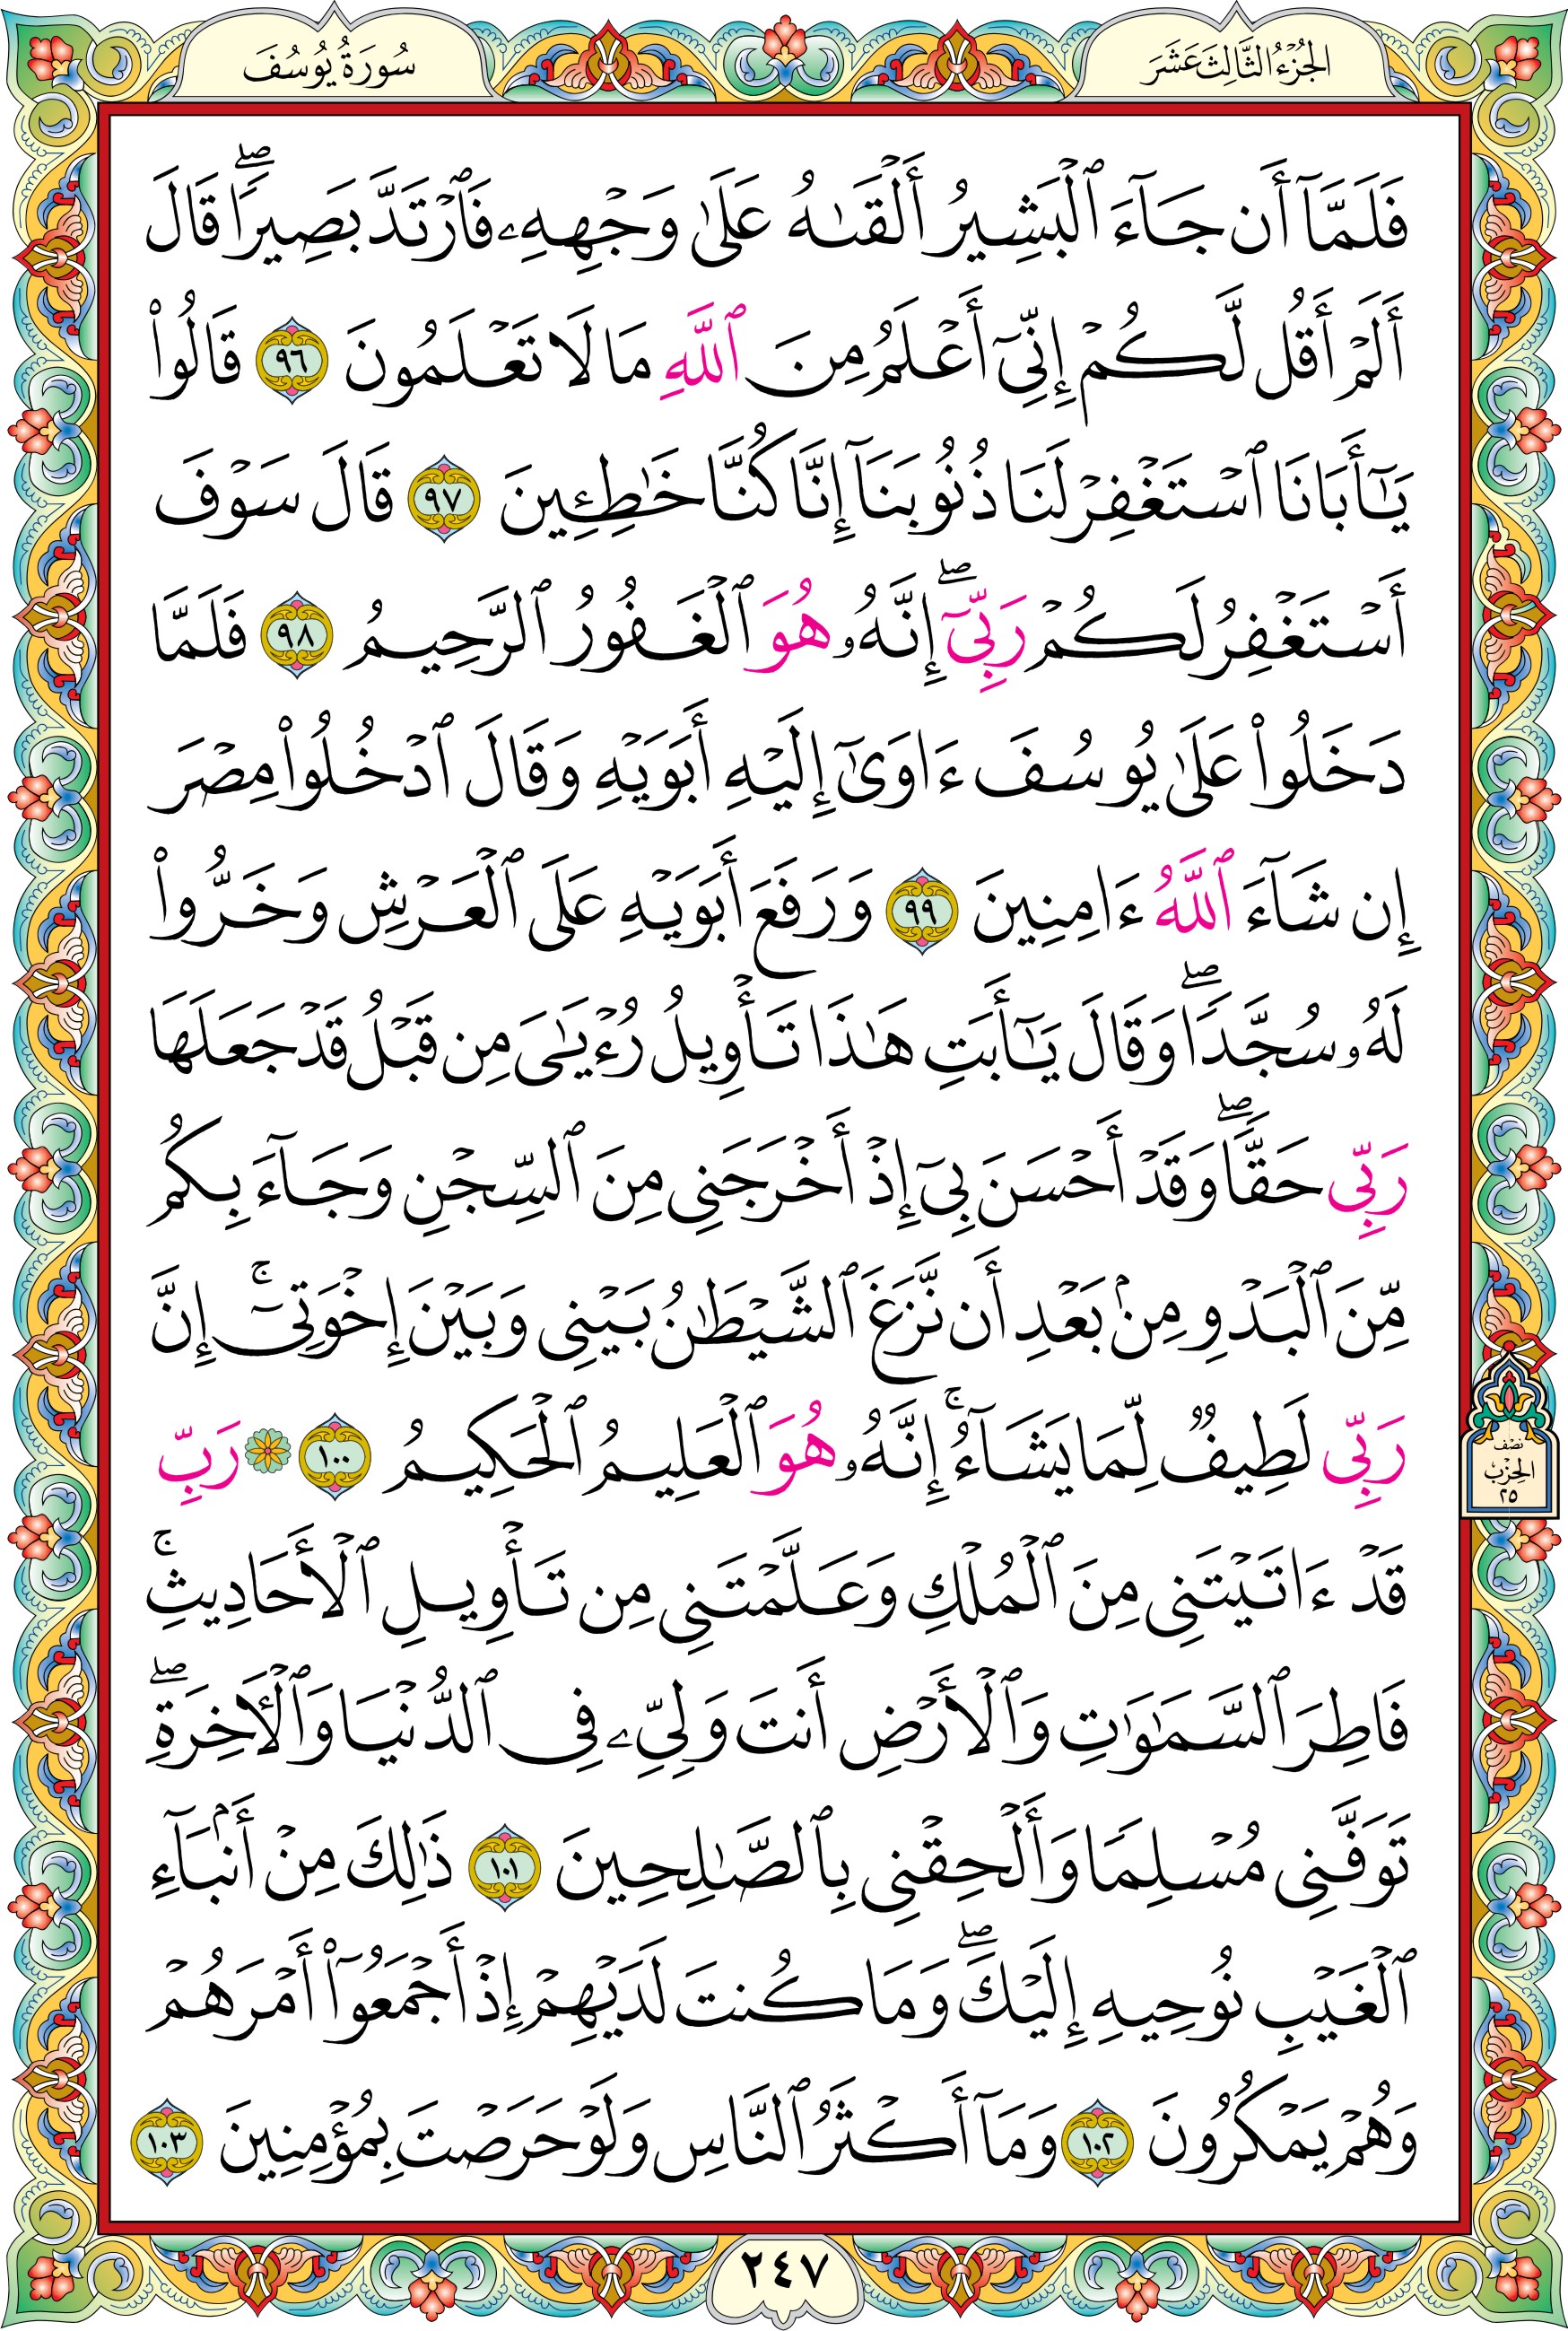 الجُزْءُ الثَّالِثَ عَشَرَ
سُورَةُ يُوسُفَ
فَلَمَّآ أَن جَآءَ ٱلْبَشِيرُ أَلْقَىٰهُ عَلَىٰ وَجْهِهِۦ فَٱرْتَدَّ بَصِيرًاۖ قَالَ
أَلَمْ أَقُل لَّكُمْ إِنِّىٓ أَعْلَمُ مِنَ ٱللَّهِ مَا لَا تَعْلَمُونَ ٩٦ قَالُوا۟
يَـٰٓأَبَانَا ٱسْتَغْفِرْ لَنَا ذُنُوبَنَآ إِنَّا كُنَّا خَـٰطِـِٔينَ ٩٧ قَالَ سَوْفَ
أَسْتَغْفِرُ لَكُمْ رَبِّىٓۖ إِنَّهُۥ هُوَ ٱلْغَفُورُ ٱلرَّحِيمُ ٩٨ فَلَمَّا
دَخَلُوا۟ عَلَىٰ يُوسُفَ ءَاوَىٰٓ إِلَيْهِ أَبَوَيْهِ وَقَالَ ٱدْخُلُوا۟ مِصْرَ
إِن شَآءَ ٱللَّهُ ءَامِنِينَ ٩٩ وَرَفَعَ أَبَوَيْهِ عَلَى ٱلْعَرْشِ وَخَرُّوا۟
لَهُۥ سُجَّدًاۖ وَقَالَ يَـٰٓأَبَتِ هَـٰذَا تَأْوِيلُ رُءْيَـٰىَ مِن قَبْلُ قَدْ جَعَلَهَا
رَبِّى حَقًّاۖ وَقَدْ أَحْسَنَ بِىٓ إِذْ أَخْرَجَنِى مِنَ ٱلسِّجْنِ وَجَآءَ بِكُم
مِّنَ ٱلْبَدْوِ مِنۢ بَعْدِ أَن نَّزَغَ ٱلشَّيْطَـٰنُ بَيْنِى وَبَيْنَ إِخْوَتِىٓۚ إِنَّ
رَبِّى لَطِيفٌ لِّمَا يَشَآءُۚ إِنَّهُۥ هُوَ ٱلْعَلِيمُ ٱلْحَكِيمُ ١٠٠ ۞ رَبِّ
نصف
الحزب
٢٥
قَدْ ءَاتَيْتَنِى مِنَ ٱلْمُلْكِ وَعَلَّمْتَنِى مِن تَأْوِيلِ ٱلْأَحَادِيثِۚ
فَاطِرَ ٱلسَّمَـٰوَٰتِ وَٱلْأَرْضِ أَنتَ وَلِىِّۦ فِى ٱلدُّنْيَا وَٱلْـَٔاخِرَةِۖ
تَوَفَّنِى مُسْلِمًا وَأَلْحِقْنِى بِٱلصَّـٰلِحِينَ ١٠١ ذَٰلِكَ مِنْ أَنۢبَآءِ
ٱلْغَيْبِ نُوحِيهِ إِلَيْكَۖ وَمَا كُنتَ لَدَيْهِمْ إِذْ أَجْمَعُوٓا۟ أَمْرَهُمْ
وَهُمْ يَمْكُرُونَ ١٠٢ وَمَآ أَكْثَرُ ٱلنَّاسِ وَلَوْ حَرَصْتَ بِمُؤْمِنِينَ ١٠٣
٢٤٧